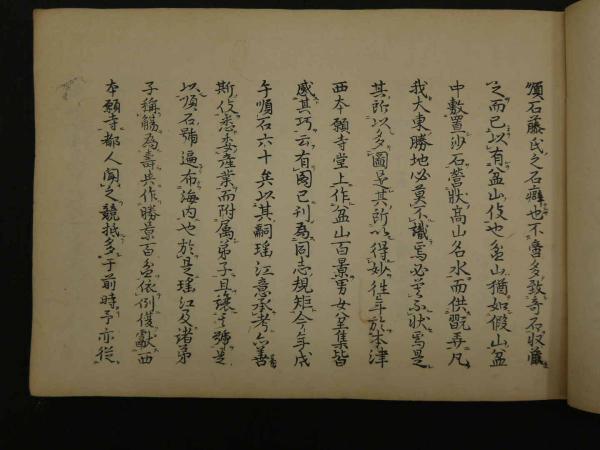 頑石藤氏之石癖也不啻多致奇石收藏
之而已以有盆山伎也盆山猶如假山盆
中敷置沙石營狀高山名水而供翫弄凡
我大東勝地必莫不識焉必莫不狀焉是
其所以多圖是其所以得妙往年於本津
西本願寺堂上作盆山百景男女坌集皆
感其巧云有圖已刊為同志規矩今年戊
午頑石六十矣以其嗣瑶江意承考亦善
斯伎悉委產業而附屬弟子且讓其號是
以頑石號遍布海内也於是瑶江及諸弟
子稱觴為壽共作勝景百盆依例復獻西
本願寺都人聞之競抵多于前時予亦從